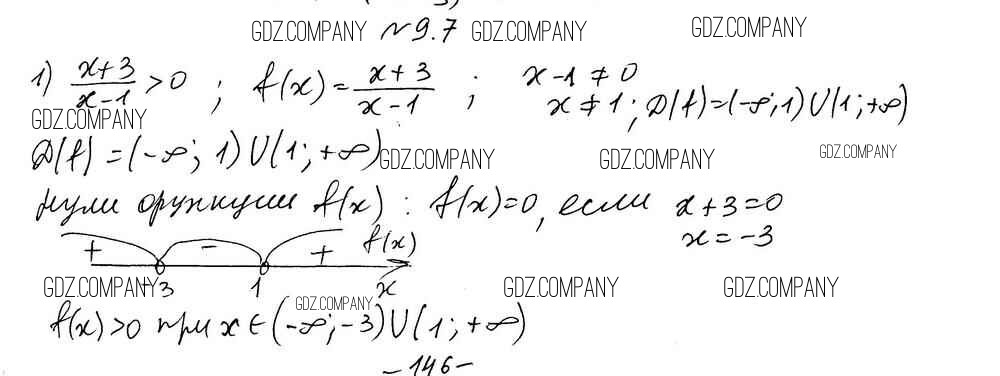 GDZ.COMPANY №9.7 GDZ.COMPANY GDZ.COMPANY
1) (x+3)/(x-1) > 0 ; f(x) = (x+3)/(x-1) ; x-1 ≠ 0
GDZ.COMPANY x ≠ 1 ; D(f)=(-∞; 1) U (1; +∞)
D(f) = (-∞; 1) U (1; +∞) GDZ.COMPANY GDZ.COMPANY GDZ.COMPANY
нули функции f(x) : f(x)=0, если x+3=0
x = -3
+ - + f(x)
GDZ.COMPANY -3 1 x GDZ.COMPANY GDZ.COMPANY GDZ.COMPANY
f(x)>0 при x ∈ (-∞; -3) U (1; +∞)
- 146 -